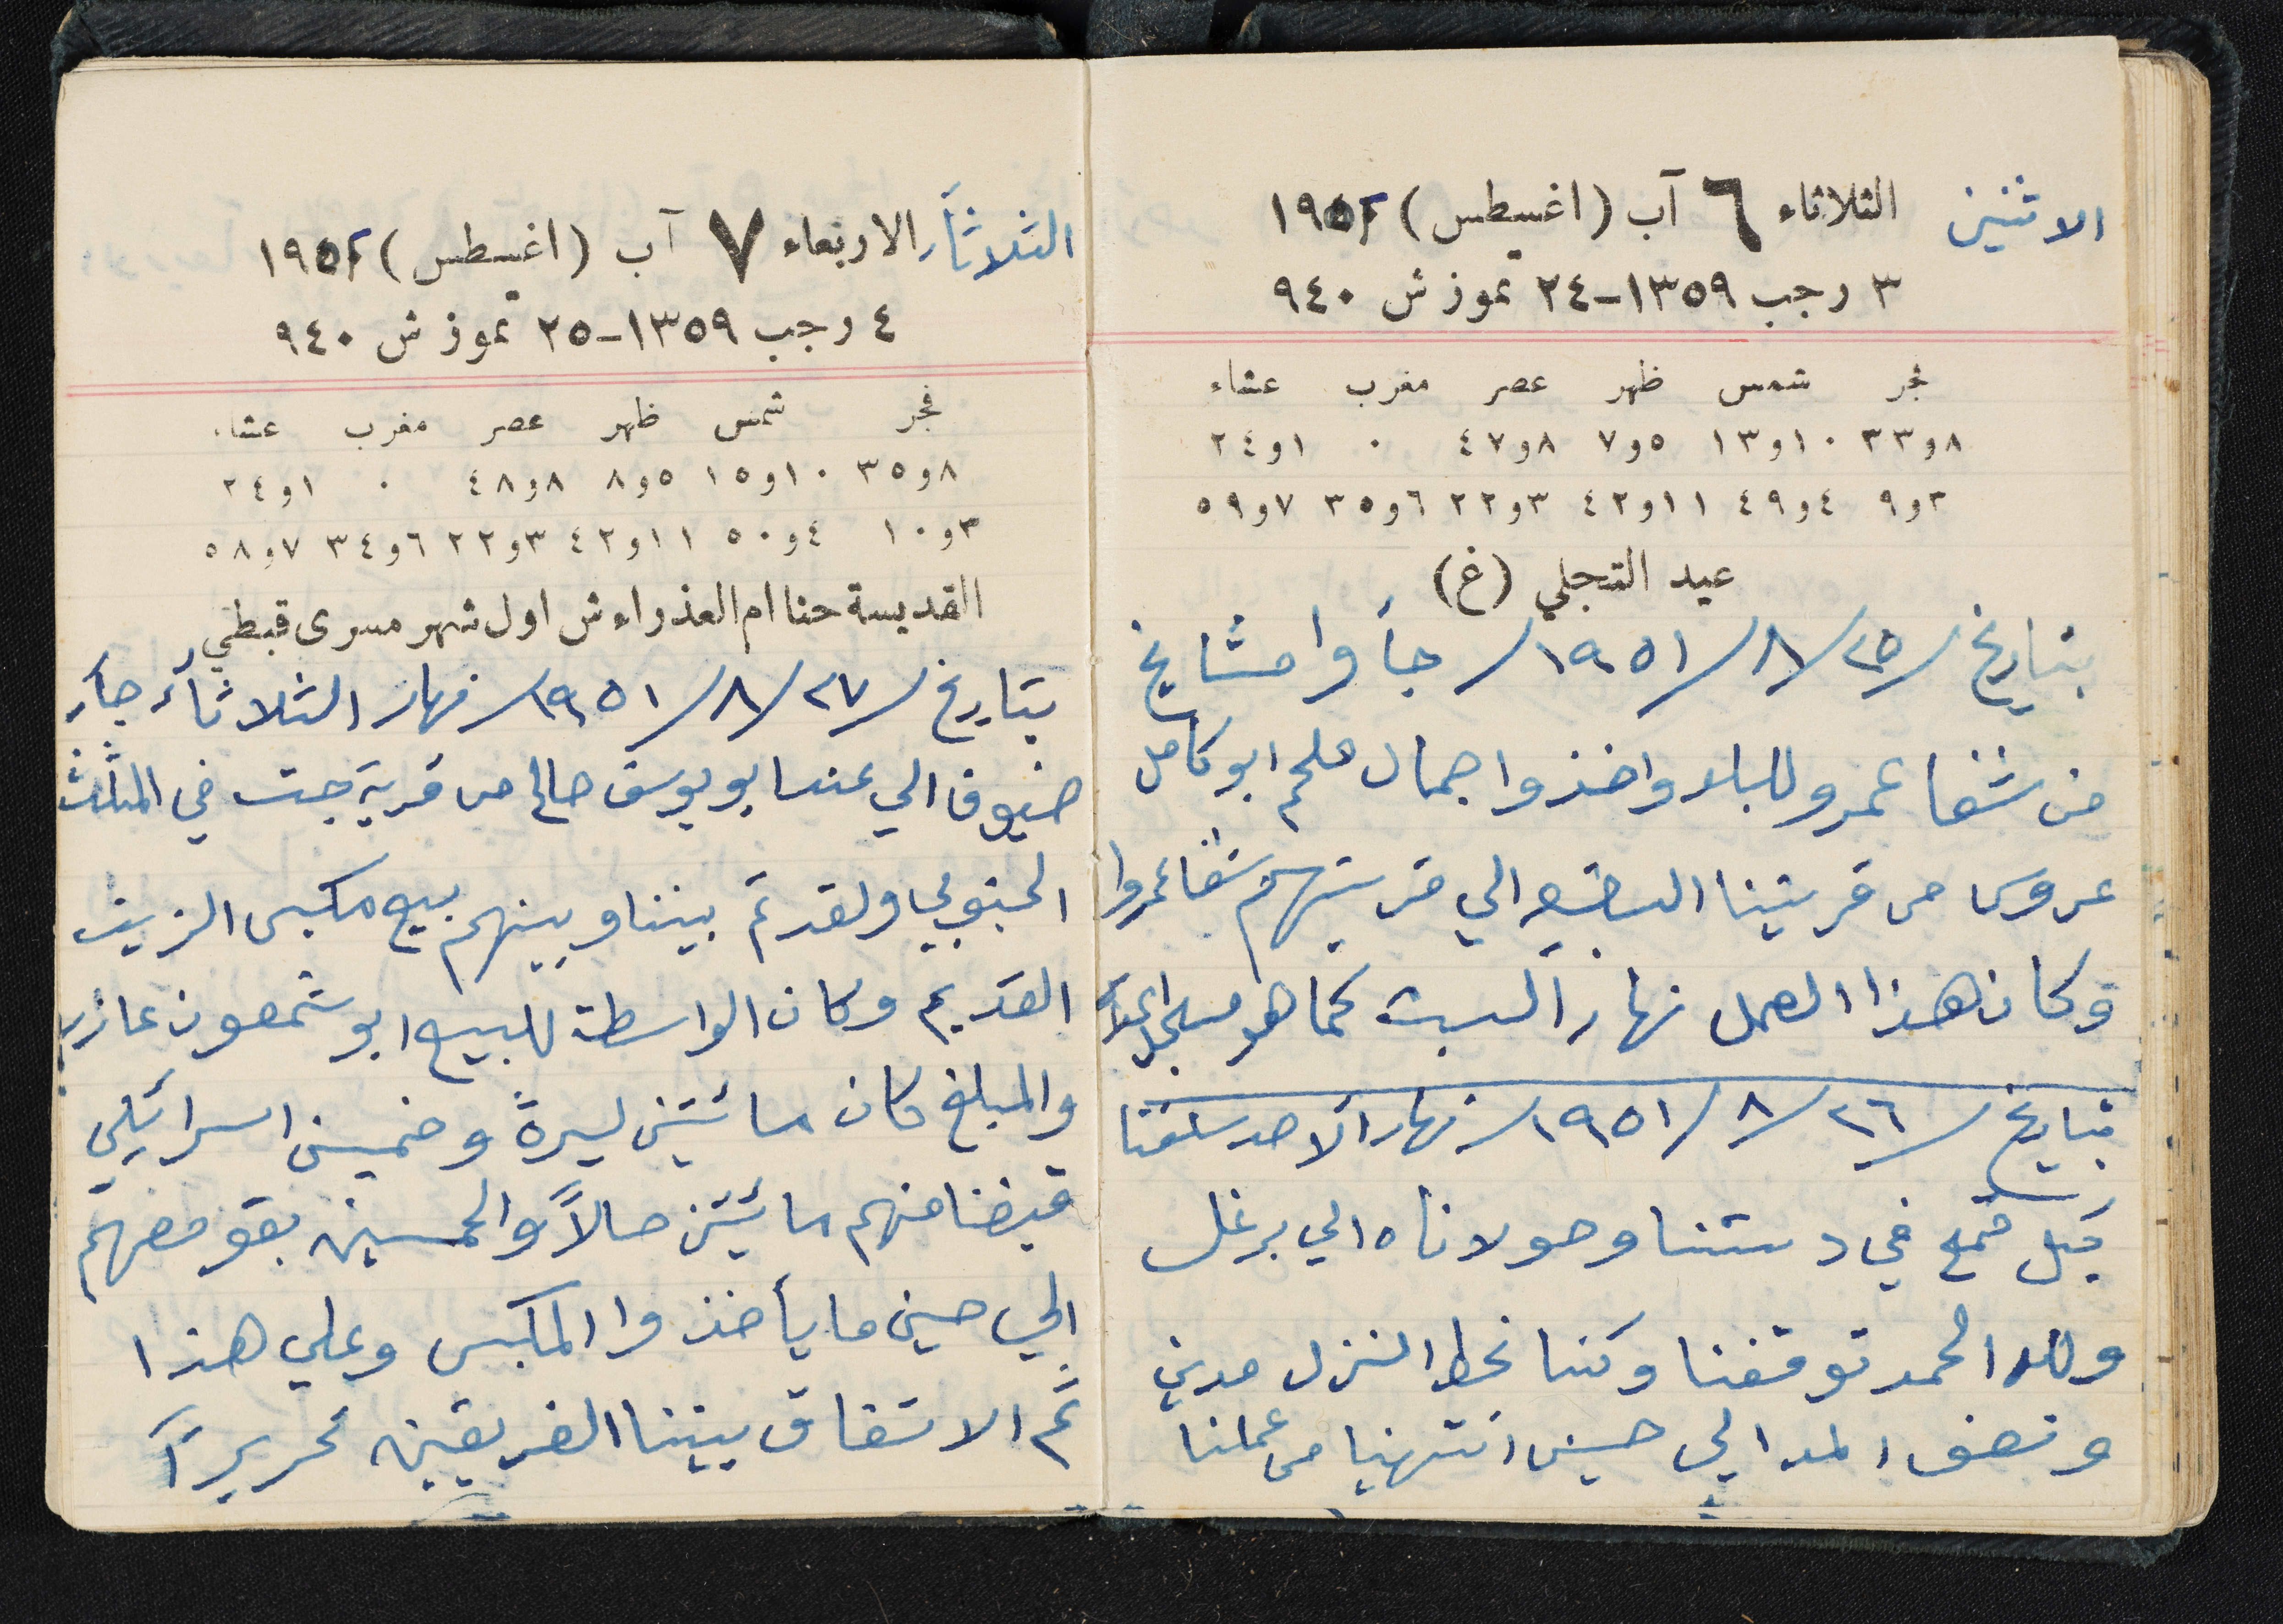 الاثنين الثلاثاء ٦ آب (اغسطس) ١٩٥١
٣ رجب ١٣٥٩-٢٤ تموز ش ٩٤٠
فجر شمس ظهر عصر مغرب عشاء
٨و٣٣ ١٠و١٣ ٥و٧ ٨و٤٧ ٠ ١و٢٤
٣و٩ ٤و٤٩ ١١و٤٢ ٣و٢٢ ٦و٣٥ ٧و٥٩
عيد التجلي (غ)
بتاريخ /٢٥/٨/١٩٥١/ جأوا مشايخ
من شفا عمرو للبلد واخذوا جمال ملحم ابو كامل
عروس من قريتنا البقيعه الي قريتهم شفاعمروا
وكان هذا العمل نهار السبت كما هو مسجل اعلاه
بتاريخ /٢٦/٨/١٩٥١/ نهار الاحد سلقنا
كيل قمح في دستنا وحولاناه الي برغل
ولله الحمد توقفنا وكنا نحط النزل مدين
ونصف المد الي حين انتهينا من عملنا
الثلاثاء الاربعاء ٧ آب (اغسطس) ١٩٥١
٤ رجب ١٣٥٩-٢٥ تموز ش ٩٤٠
فجر شمس ظهر عصر مغرب عشاء
٨و٣٥ ١٠و١٥ ٥و٨ ٨و٤٨ ٠ ١و٢٤
٣و١٠ ٤و٥٠ ١١و٤٢ ٣و٢٢ ٦و٣٤ ٧و٥٨
القديسة حنا ام العذراء ش اول شهر مسرى قبطي
بتاريخ /٢٧/٨/١٩٥١/ نهار الثلاثأء جاء
ضيوف الي عند ابو يوسف صالح من قرية جت في المثلث
الجنوبي ولقد تم بيننا وبينهم بيع مكبس الزيت
القديم وكان الواسطة للبيع ابو شمعون عازر
والمبلغ كان مائتين ليرة وخمسين اسرائيلي
قبضنا منهم مائتين حالاً والخمسين بقو معهم
الي حين ما يأخذوا المكبس وعلي هذا
تم الاتفاق بيننا الفريقين تحريراً